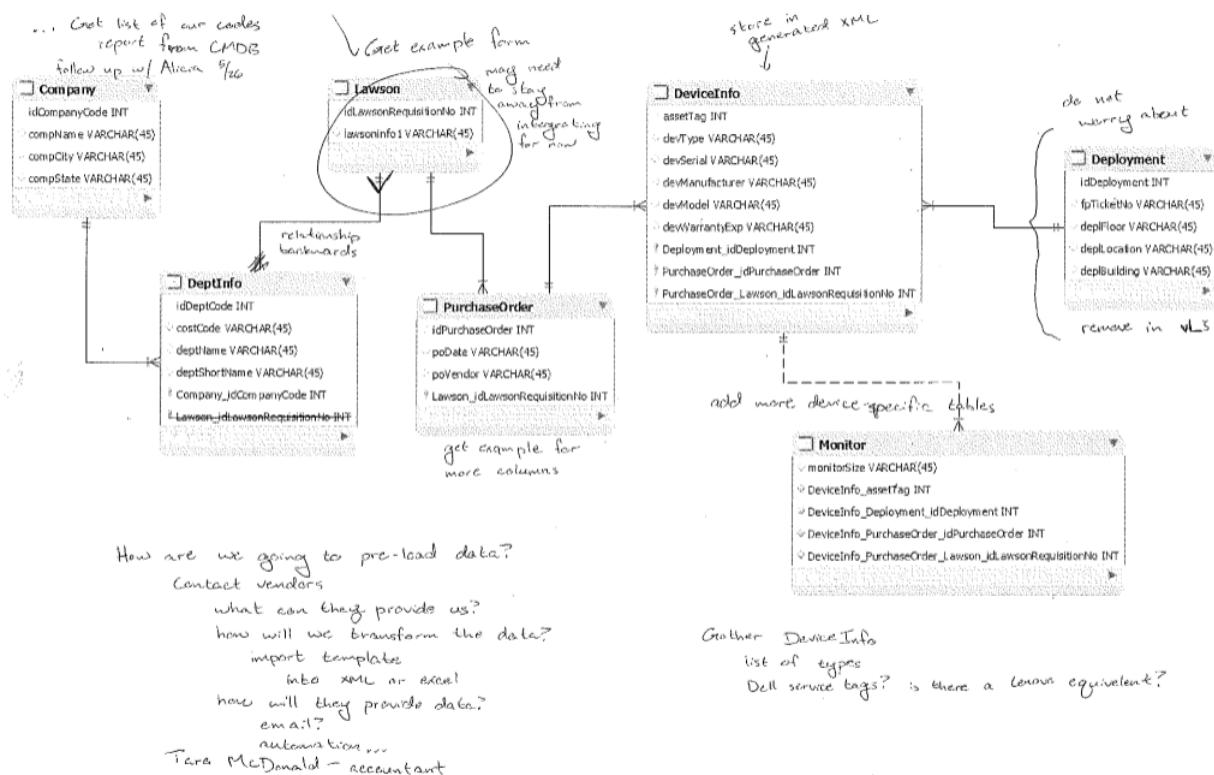 ... Get list of our codes
report from CMDB
follow up w/ Alicia 5/26
Company
idCompanyCode INT
compName VARCHAR(45)
compCity VARCHAR(45)
compState VARCHAR(45)
Get example form
may need
to stay
away from
intergrating
for now
Lawson
idLawsonRequisitionNo INT
lawsoninfo1 VARCHAR(45)
relationship
backwards
store in
generated XML
DeviceInfo
assetTag INT
devType VARCHAR(45)
devSerial VARCHAR(45)
devManufacturer VARCHAR(45)
devModel VARCHAR(45)
devWarrantyExp VARCHAR(45)
Deployment_idDeployment INT
PurchaseOrder_idPurchaseOrder INT
PurchaseOrder_Lawson_idLawsonRequisitionNo INT
do not
worry about
Deployment
idDeployment INT
fpTicketNo VARCHAR(45)
deplFloor VARCHAR(45)
deplLocation VARCHAR(45)
deplBuilding VARCHAR(45)
remove in
DeptInfo
idDeptCode INT
costCode VARCHAR(45)
deptName VARCHAR(45)
deptShortName VARCHAR(45)
Company_idCompanyCode INT
Lawson_idLawsonRequisitionNo INT
PurchaseOrder
idPurchaseOrder INT
poDate VARCHAR(45)
poVendor VARCHAR(45)
Lawson_idLawsonRequisitionNo INT
get example for
more columns
add more device-specific tables
Monitor
monitorSize VARCHAR(45)
DeviceInfo_assetTag INT
DeviceInfo_Deployment_idDeployment INT
DeviceInfo_PurchaseOrder_idPurchaseOrder INT
DeviceInfo_PurchaseOrder_Lawson_idLawsonRequisitionNo INT
How are we going to pre-load data?
Contact vendors
what can they provide us?
how will we transform the data?
import template
into XML or excel
how will they provide data?
email?
automation...
Tara McDonald - accountant
Gather DeviceInfo
list of types
Dell service tags? is there a Lenovo equivalent?